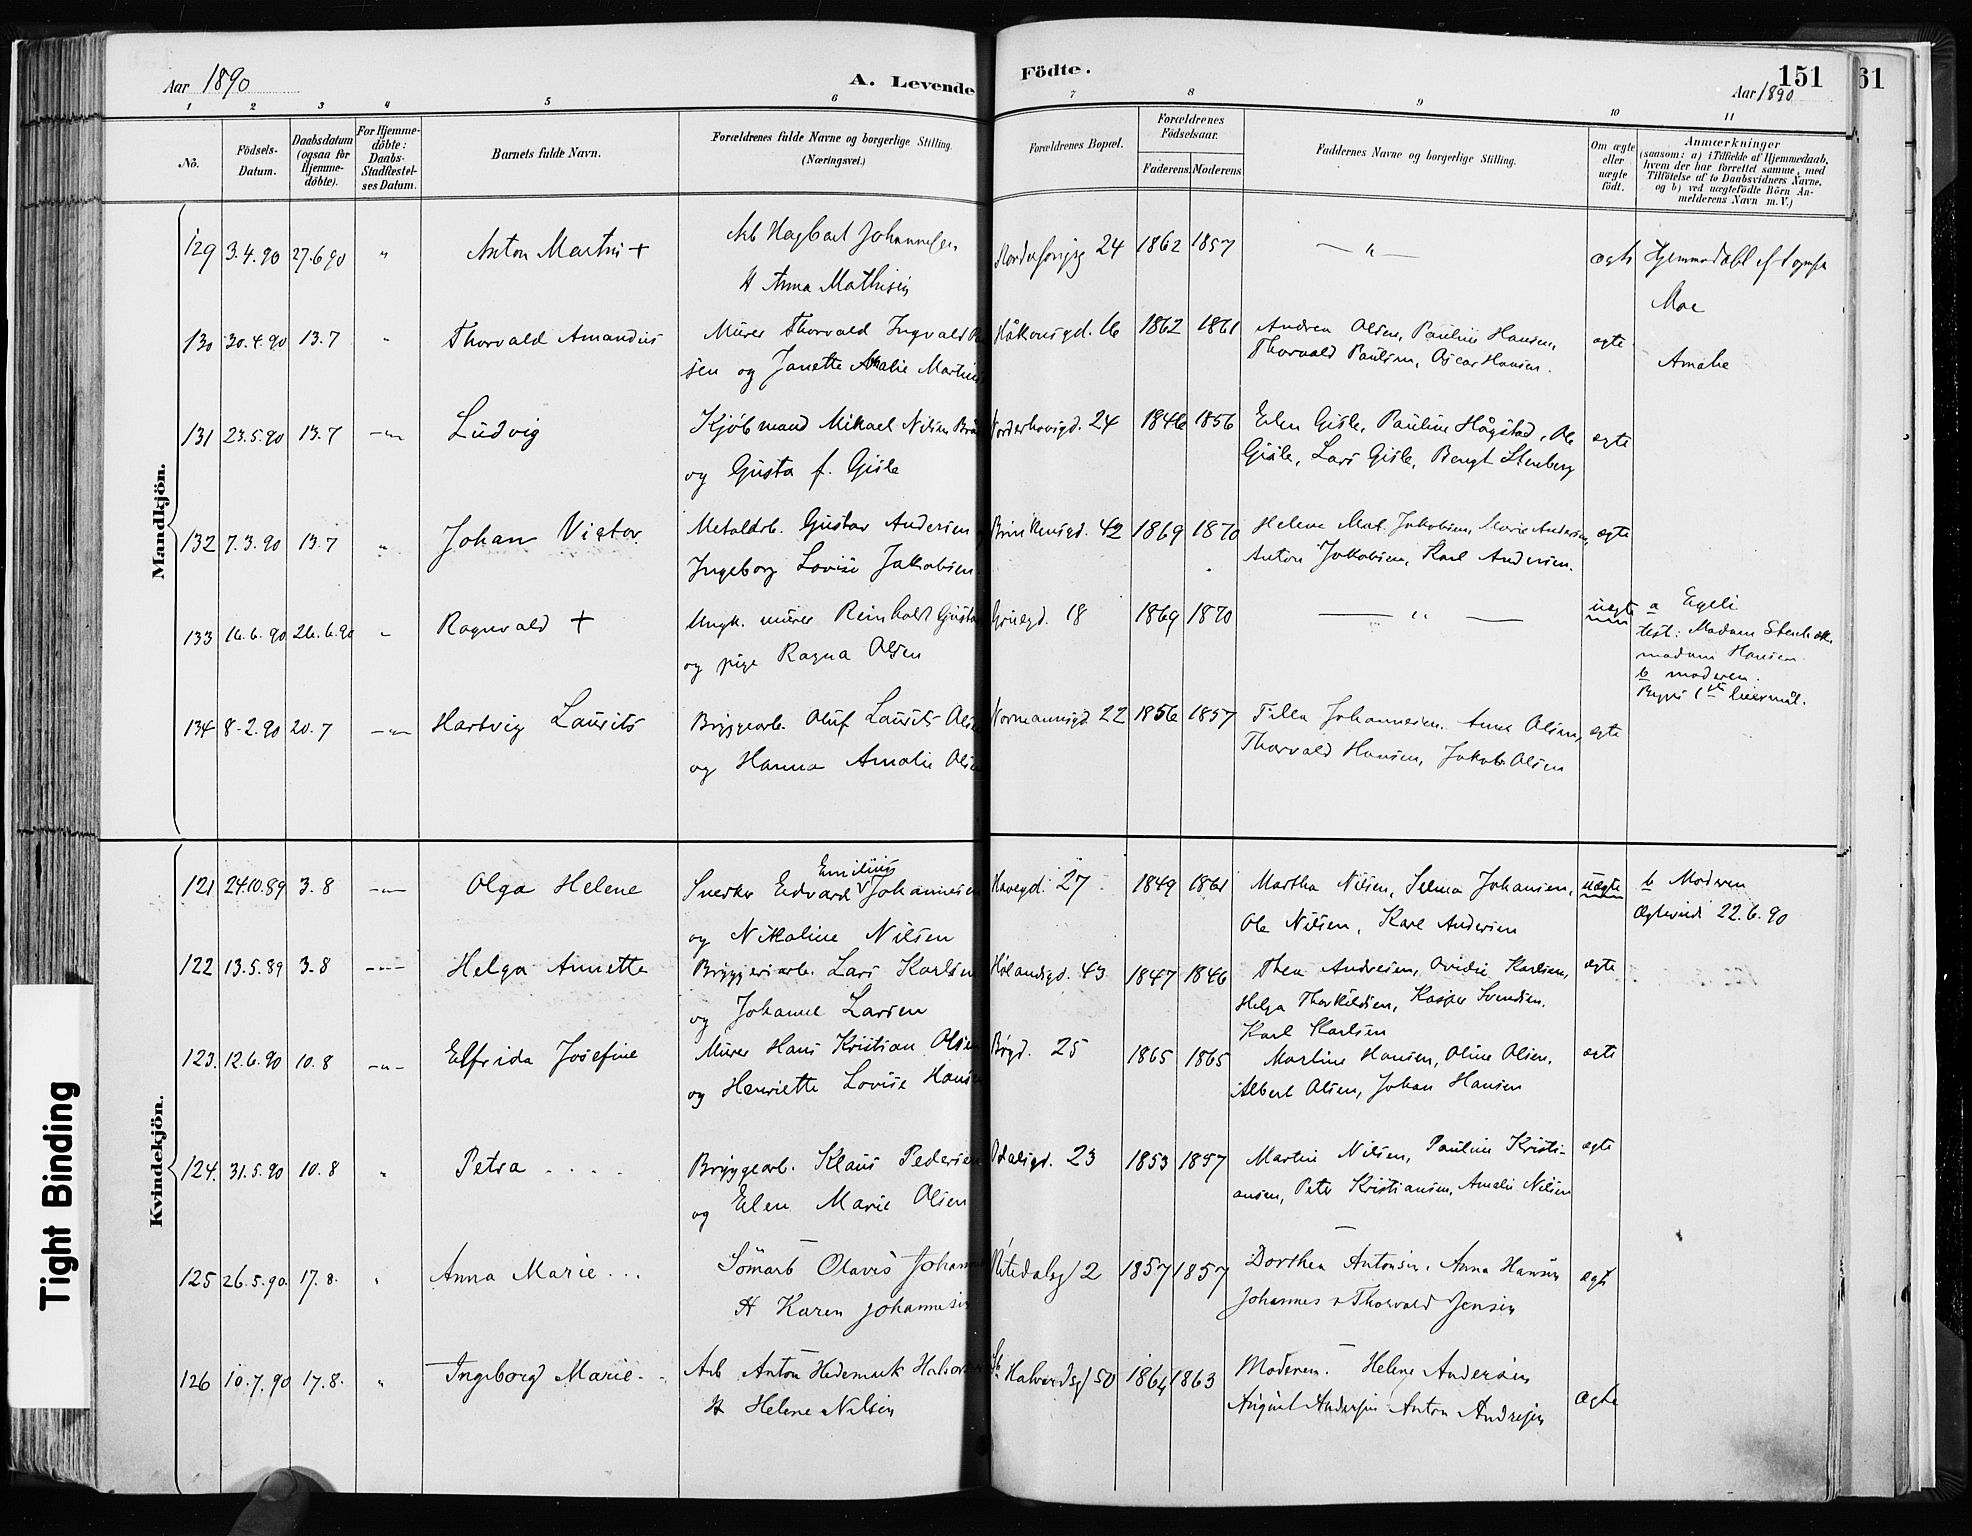 Aar 1890
A. Levende Födte.
151
61
Aar 1890
1 2 3 4 5 6 7 8 9 10 11
Nö.
Födsels-Datum.
Daabsdatum (ogsaa for Hjemme-döbte).
For Hjemme-döbte: Daabs-Stadfæstel-ses Datum.
Barnets fulde Navn.
Forældrenes fulde Navne og borgerlige Stilling. (Næringsvei.)
Forældrenes Bopæl.
Forældrenes Födselsaar.
Faderens. Moderens.
Faddernes Navne og borgerlige Stilling.
Om ægte eller uægte födt.
Anmærkninger
(saasom: a) i Tilfælde af Hjemmedaab, hvem der har forrettet samme, med Tilföielse af to Daabsvidners Navne, og b) ved uægtefödte Börn An-melderens Navn m. V.)
Mandkjön.
129 3.4.90 27.6 90 " Anton Martin + Arb Hagbart Johannesen 24 1862 1857 — " — ægte
H Anna Mathisen
Moe
130 30.4.90 13.7 " Thorvald Amandus Murer Thorvald Ingvald Håkonsgd. 16 1862 1861 Andrea Olsen, Pauline Hansen, ægte
sen og Janette Amalie Thorvald Paulsen, Oscar Hansen. Amalie
131 23.5.90 13.7 —"— Ludvig Kjöbmand Mikael Nilsen Norderhovsgd. 24 1846 1856 Elen Gisle, Pauline Hågstad, Ole ægte
og Gusta f. Gisle Gisle, Lars Gisle, Bengt Stenberg
132 7.3.90 13.7 " Johan Victor Metalarb. Gustav Andersen Brinkensgd. 42 1869 1870 Helene Mat. Jakobsen, Marie Andersen, ægte
Ingeborg Lovise Jakobsen. Anton Jakobsen, Karl Andersen.
133 16.6.90 26.6.90 " Ragnvald + Ungk. murer Reinholt Gustav Grüegd. 18 1869 1870 — " — uægte a Egeli
og pige Ragna Olsen test: Madam
madam Hansen.
b moderen.
134 8.2.90 20.7 —"— Hartvig Laurits Bryggearb. Oluf Laurits Normannsgd. 22 1856 1857 Tilla Johannesen. Anna Olsen, ægte
og Hanna Amalie Olsen Thorvald Hansen, Jakob Olsen
Kvindekjön.
121 24.10.89 3.8 —"— Olga Helene Snedker Edvard Emilius Johannesen Havegd. 27 1849 1861 Martha Nilsen, Selma Johansen, uægte b Moderen
og Nikoline Nilsen Ole Nilsen, Karl Andersen 22.6.90
122 13.5.89 3.8 —"— Helga Annette Bryggeriarb. Lars Karlsen Hölandsgd. 43 1847 1846 Thea Andresen, Ovidie Karlsen, ægte
og Johanne Larsen Helga Thorkildsen, Kasper Svendsen.
Karl Karlsen
123. 12.6.90 10.8 —"— Elfrida Josefine Murer Hans Kristian Olsen Bögd. 25 1865 1865 Martine Hansen, Oline Olsen, ægte
og Henriette Lovise Hansen Albert Olsen, Johan Hansen
124. 31.5.90 10.8 " Petra . . . . Bryggearb. Klaus Pedersen Odalsgd. 23 1853 1857 Martin Nilsen, Pauline Kristi-ægte
og Elen Marie Olsen ansen, Peter Kristiansen, Amalie Nilsen
125 26.5.90. 17.8. " Anna Marie . . . Olavs 2 1857 1857 Dorthea Antonsen, Anna Hansen ægte
H Karen Johannesen Johannes & Thorvald Jensen
126 10.7.90 17.8. " Ingeborg Marie. . Arb Anton Hedemark St Halvardsg 50 1864 1863 Moderen. Helene Andersen ægte
H Helene Nilsen August Andersen Anton Andresen
Tight Binding